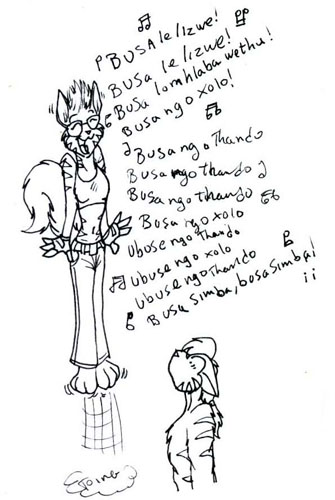 BUSA le lizwe!
BUSA le lizwe!
Busa lomhlaba wethu!
Busa ngo xolo!
Busa ngo Thando
Busa ngo thando
Busa ngo thando
Busa ngo xolo
Ubuse ngo Thando
Ubuse ngo xolo
Ubuse ngo Thando
Busa Simba, busa Simba!
¡¡